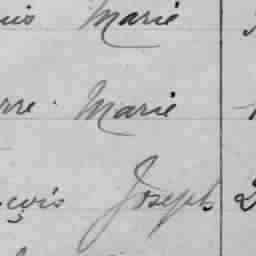 uis Marie
rre Marie
çois Joseph